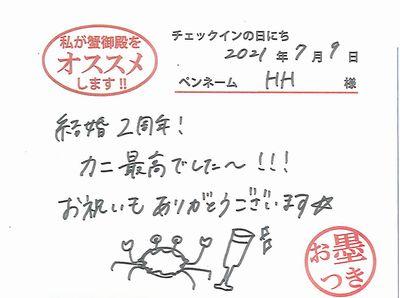 私が蟹御殿を
オススメ
します!!
チェックインの日にち
2021年7月9日
ペンネーム HH 様
結婚2周年!
カニ最高でした〜!!!
お祝いもありがとうございます☆
お墨
つき